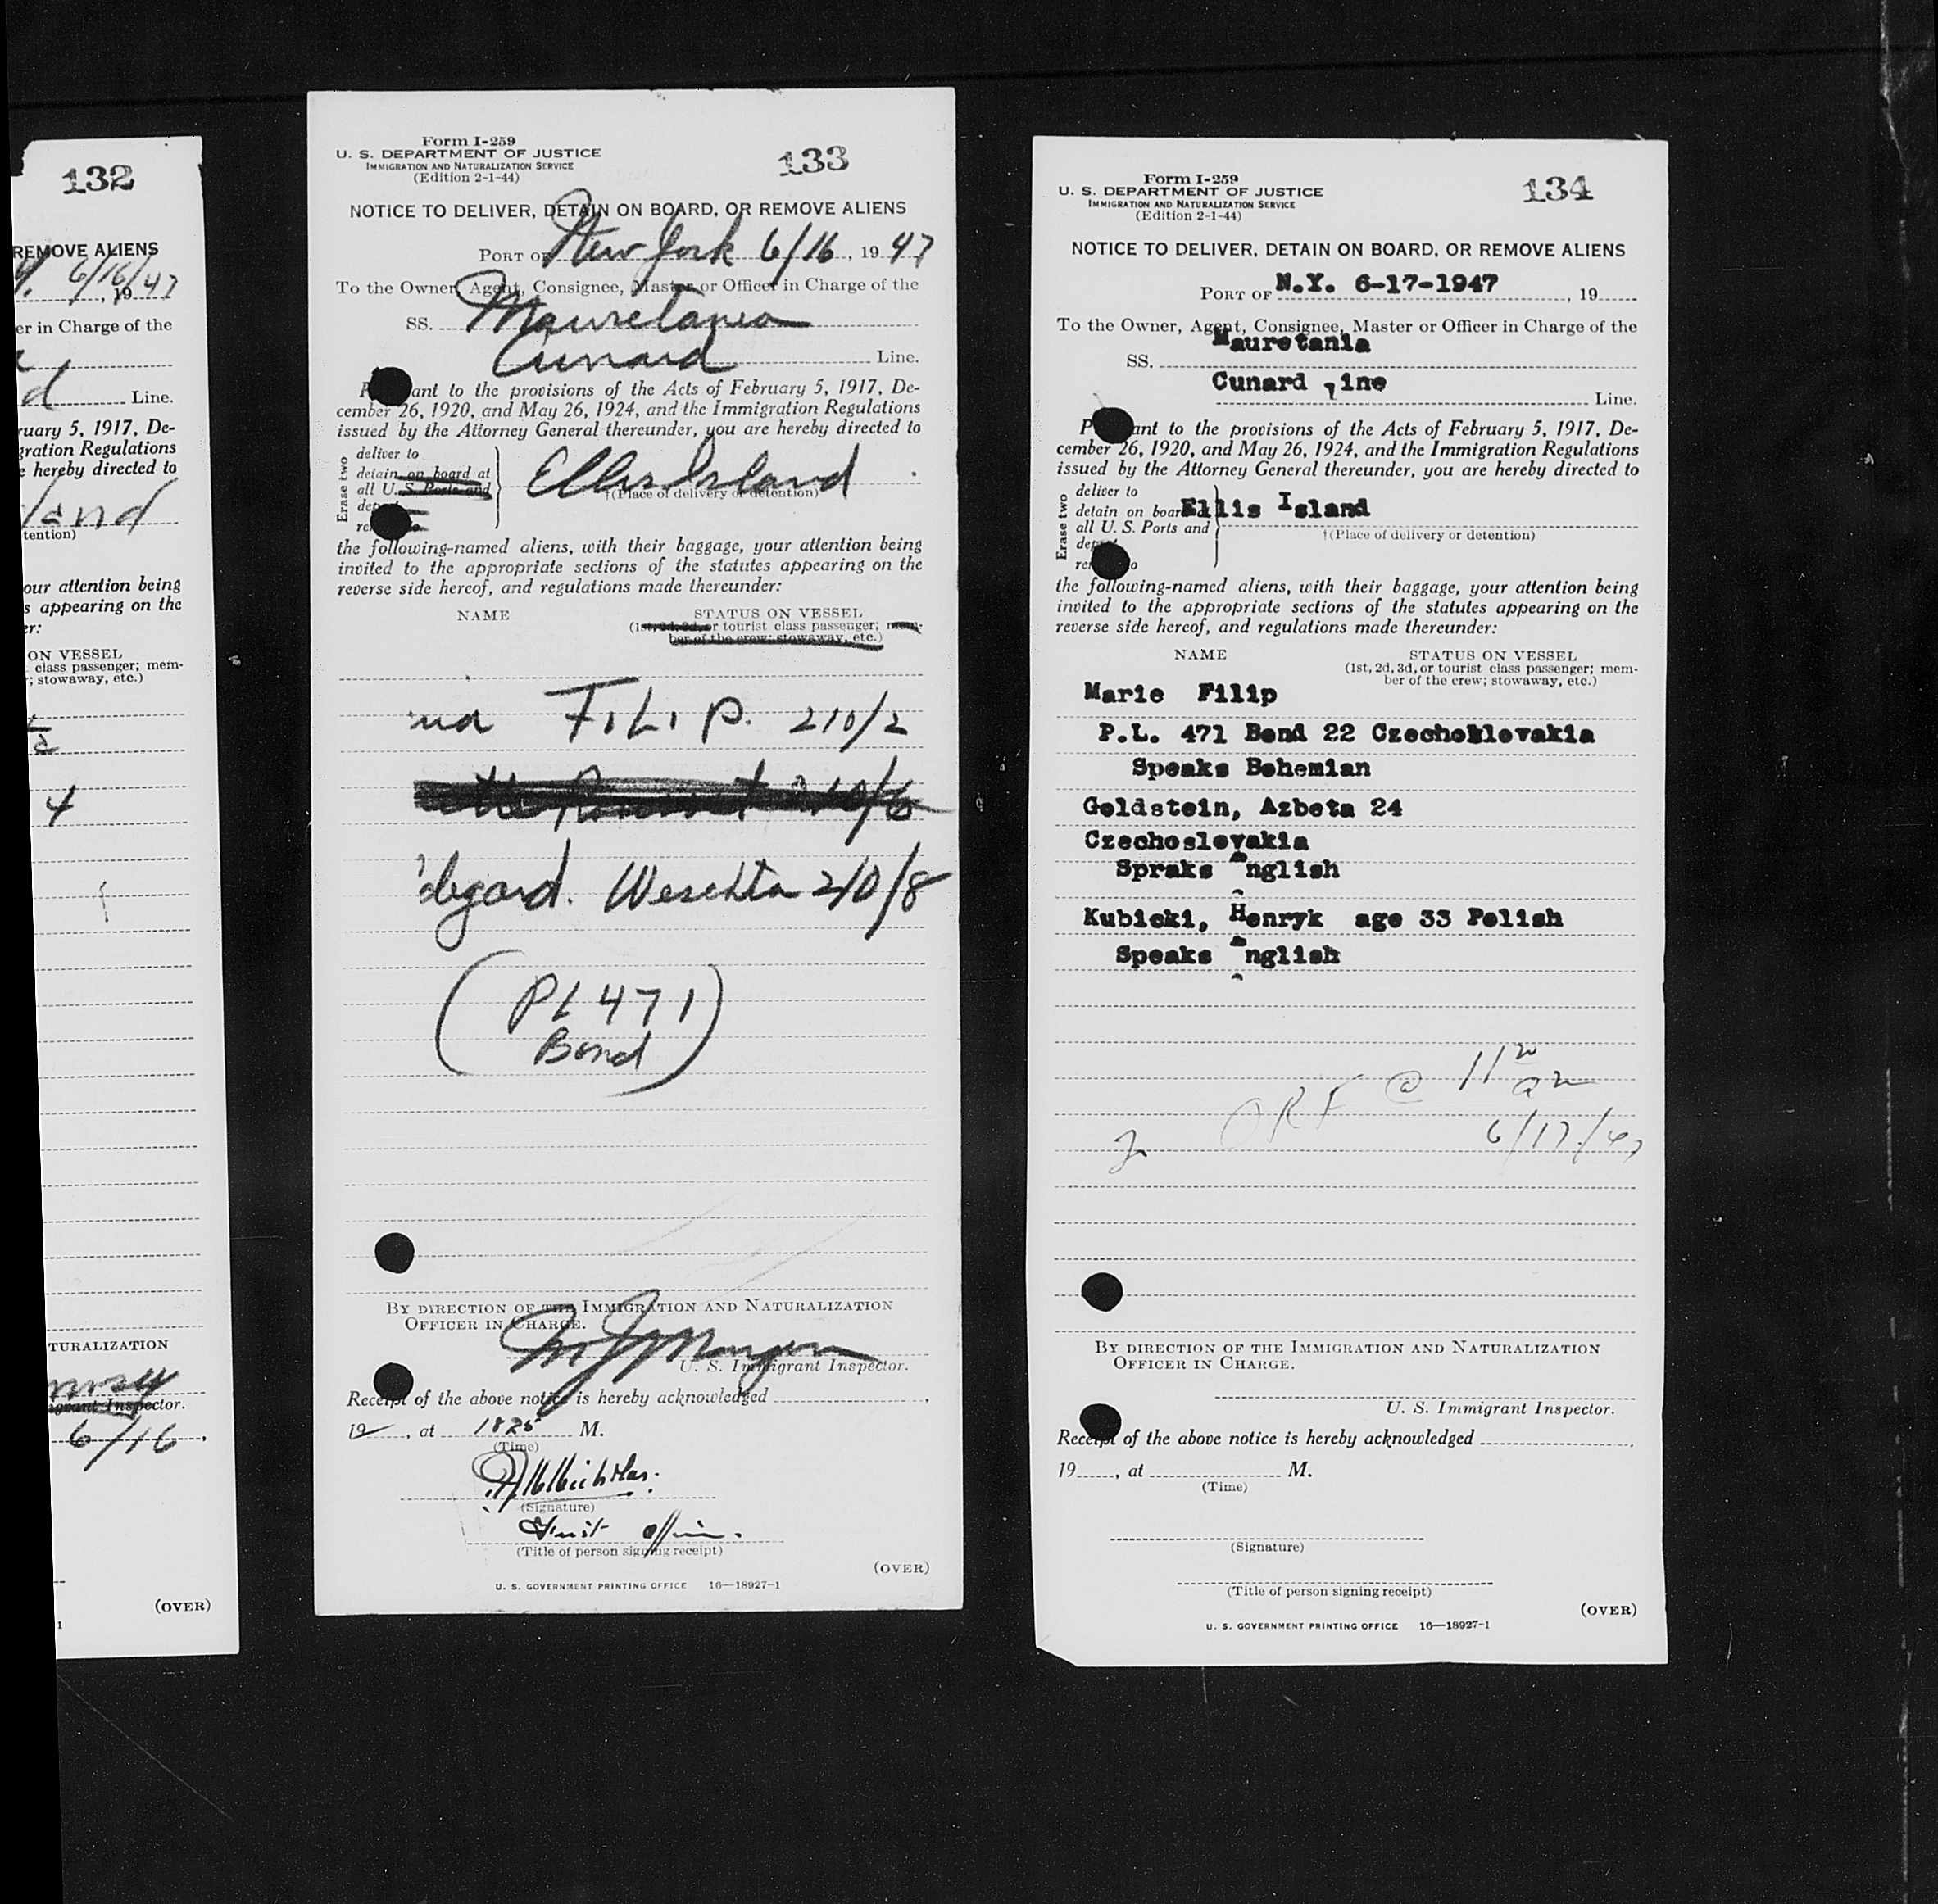 132
REMOVE ALIENS
6/16/47
, 19
er in Charge of the
d Line.
ruary 5, 1917, De-
gration Regulations
e hereby directed to
land
tention)
our attention being
s appearing on the
er:
ON VESSEL
class passenger; mem-
; stowaway, etc.)
4
TURALIZATION
Inspector.
6/16
(OVER)
1
Form I-259
U. S. DEPARTMENT OF JUSTICE
IMMIGRATION AND NATURALIZATION SERVICE
(Edition 2-1-44)
133
NOTICE TO DELIVER, DETAIN ON BOARD, OR REMOVE ALIENS
PORT OF New York 6/16, 1947
To the Owner, Agent, Consignee, Master or Officer in Charge of the
SS. Mauretania
Cunard Line.
ant to the provisions of the Acts of February 5, 1917, De-
cember 26, 1920, and May 26, 1924, and the Immigration Regulations
issued by the Attorney General thereunder, you are hereby directed to
Erase two
deliver to
detain on board at
all U. S. Ports and
Ellis Island
†(Place of delivery or detention)
the following-named aliens, with their baggage, your attention being
invited to the appropriate sections of the statutes appearing on the
reverse side hereof, and regulations made thereunder:
NAME STATUS ON VESSEL
(1st, 2d, 3d, or tourist class passenger; mem-
ber of the crew; stowaway, etc.)
FILIP. 210/2
210/6
Weschta 210/8
(PL 471)
Bond
BY DIRECTION OF THE IMMIGRATION AND NATURALIZATION
OFFICER IN CHARGE.
U. S. Immigrant Inspector.
Receipt of the above notice is hereby acknowledged
19, at 1825 M.
(Time)
(Signature)
(Title of person signing receipt)
(OVER)
U. S. GOVERNMENT PRINTING OFFICE 16—18927-1
Form I-259
U. S. DEPARTMENT OF JUSTICE
IMMIGRATION AND NATURALIZATION SERVICE
(Edition 2-1-44)
134
NOTICE TO DELIVER, DETAIN ON BOARD, OR REMOVE ALIENS
PORT OF N.Y. 6-17-1947, 19
To the Owner, Agent, Consignee, Master or Officer in Charge of the
SS. Mauretania
Cunard Line
Line.
ant to the provisions of the Acts of February 5, 1917, De-
cember 26, 1920, and May 26, 1924, and the Immigration Regulations
issued by the Attorney General thereunder, you are hereby directed to
Erase two
deliver to
detain on board
all U. S. Ports and
Ellis Island
†(Place of delivery or detention)
the following-named aliens, with their baggage, your attention being
invited to the appropriate sections of the statutes appearing on the
reverse side hereof, and regulations made thereunder:
NAME STATUS ON VESSEL
(1st, 2d, 3d, or tourist class passenger; mem-
ber of the crew; stowaway, etc.)
Marie Filip
P.L. 471 Bond 22 Czechoslovakia
Speaks Bohemian
Goldstein, Azbeta 24
Czechoslovakia
Spraks English
Kubicki, Henryk age 33 Polish
Speaks English
ORF @ 11
6/17/47
BY DIRECTION OF THE IMMIGRATION AND NATURALIZATION
OFFICER IN CHARGE.
U. S. Immigrant Inspector.
Receipt of the above notice is hereby acknowledged
19, at M.
(Time)
(Signature)
(Title of person signing receipt)
(OVER)
U. S. GOVERNMENT PRINTING OFFICE 16—18927-1